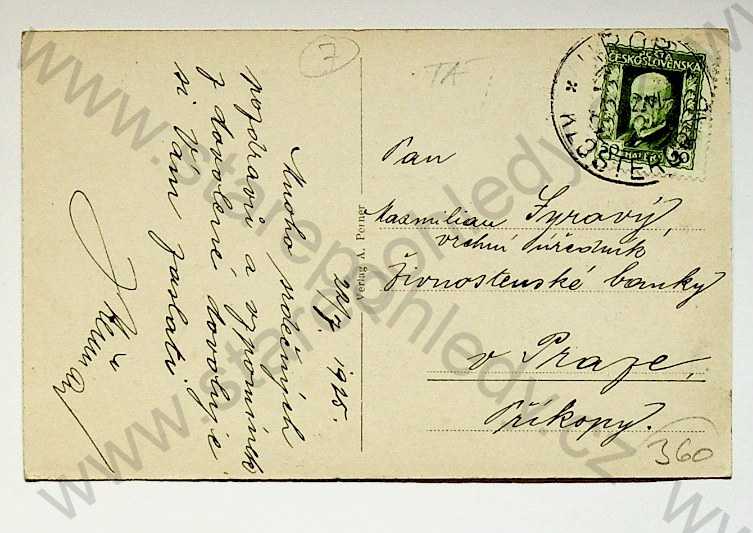 7
TA
22/7. 1925.
Mnoho srdečných
pozdravů a vzpomínek
z dovolené dovoluje
si Vám zaslati
Verlag A. Perner
ČESKOSLOVENSKÁ
50 HALÉŘŮ 50
KLOSTER
Pan
Maxmilian Syravý,
vrchní úředník
Živnostenské banky
v Praze,
Příkopy.
360
www.starepohledy.cz